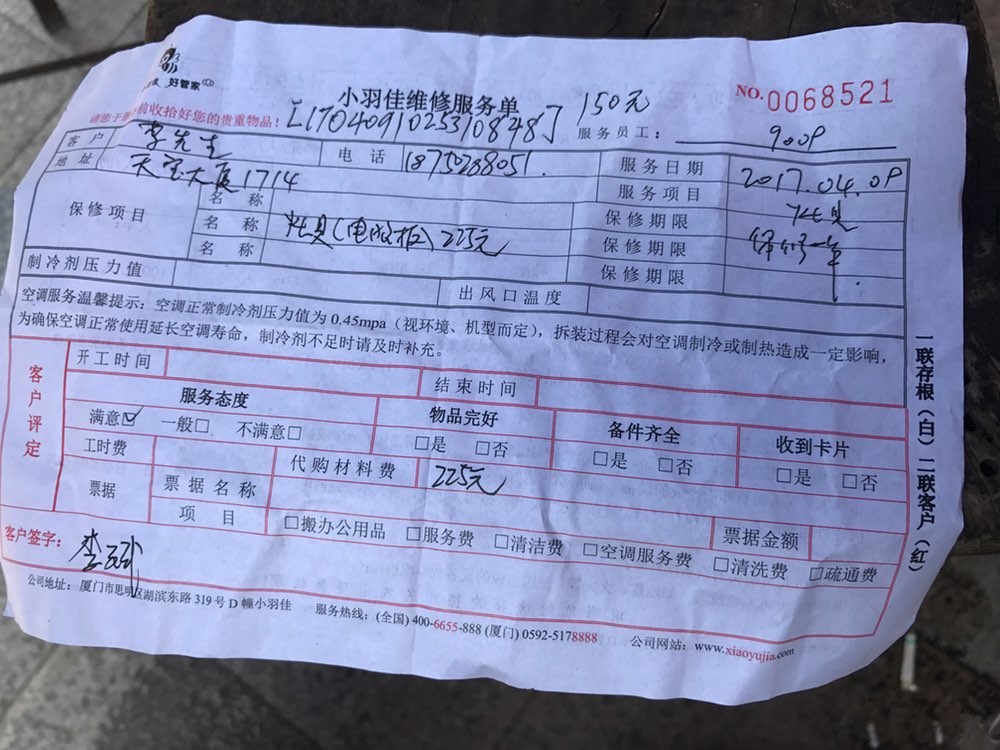 好管家
小羽佳维修服务单
150元
NO.0068521
前收拾好您的贵重物品!
[1704091025310848]
服务员工:
客户 李先生 电话 服务日期 2017.04.09
地址 天宝大厦1714 服务项目
保修项目 名称 保修期限
名称 灶具( 225元 保修期限 保修一年
名称 保修期限
制冷剂压力值 出风口温度
空调服务温馨提示:空调正常制冷剂压力值为 0.45mpa(视环境、机型而定),拆装过程会对空调制冷或制热造成一定影响,
为确保空调正常使用延长空调寿命,制冷剂不足时请及时补充。
客户评定
开工时间 结束时间
服务态度 物品完好 备件齐全 收到卡片
满意☑ 一般□ 不满意□ □是 □否 □是 □否 □是 □否
工时费 代购材料费 225元
票据 票据名称 票据金额
项目 □搬办公用品 □服务费 □清洁费 □空调服务费 □清洗费 □疏通费
客户签字:
公司地址:厦门市思明区湖滨东路 319 号 D 幢小羽佳 服务热线:(全国) 400-6655-888 (厦门) 0592-5178888 公司网站:www.xiaoyujia.com
一联存根(白)二联客户(红)